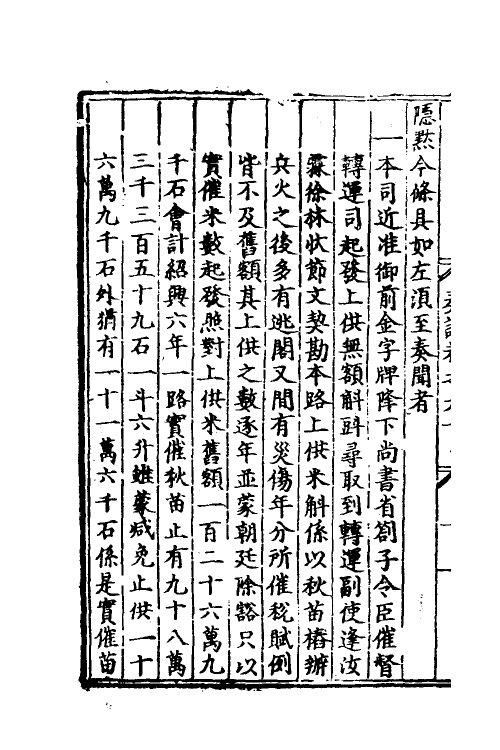 隱黙今條具如左湏至奏聞者
一本司近准御前金字牌降下尚書省劄子令臣催督
轉運司起發上供無額斛㪷尋取到轉運副使逢汝
霖徐林狀節文契勘本路上供米斛係以秋苗樁辦
兵火之後多有逃閣又間有災傷年分所催稅賦例
皆不及舊額其上供之數逐年並蒙朝廷除豁只以
實催米數起發照對上供米舊額一百二十六萬九
千石會計紹興六年一路實催秋苗止有九十八萬
三千三百五十九石一斗六升雖蒙减免止供一十
六萬九千石外猶有一十一萬六千石係是實催苗